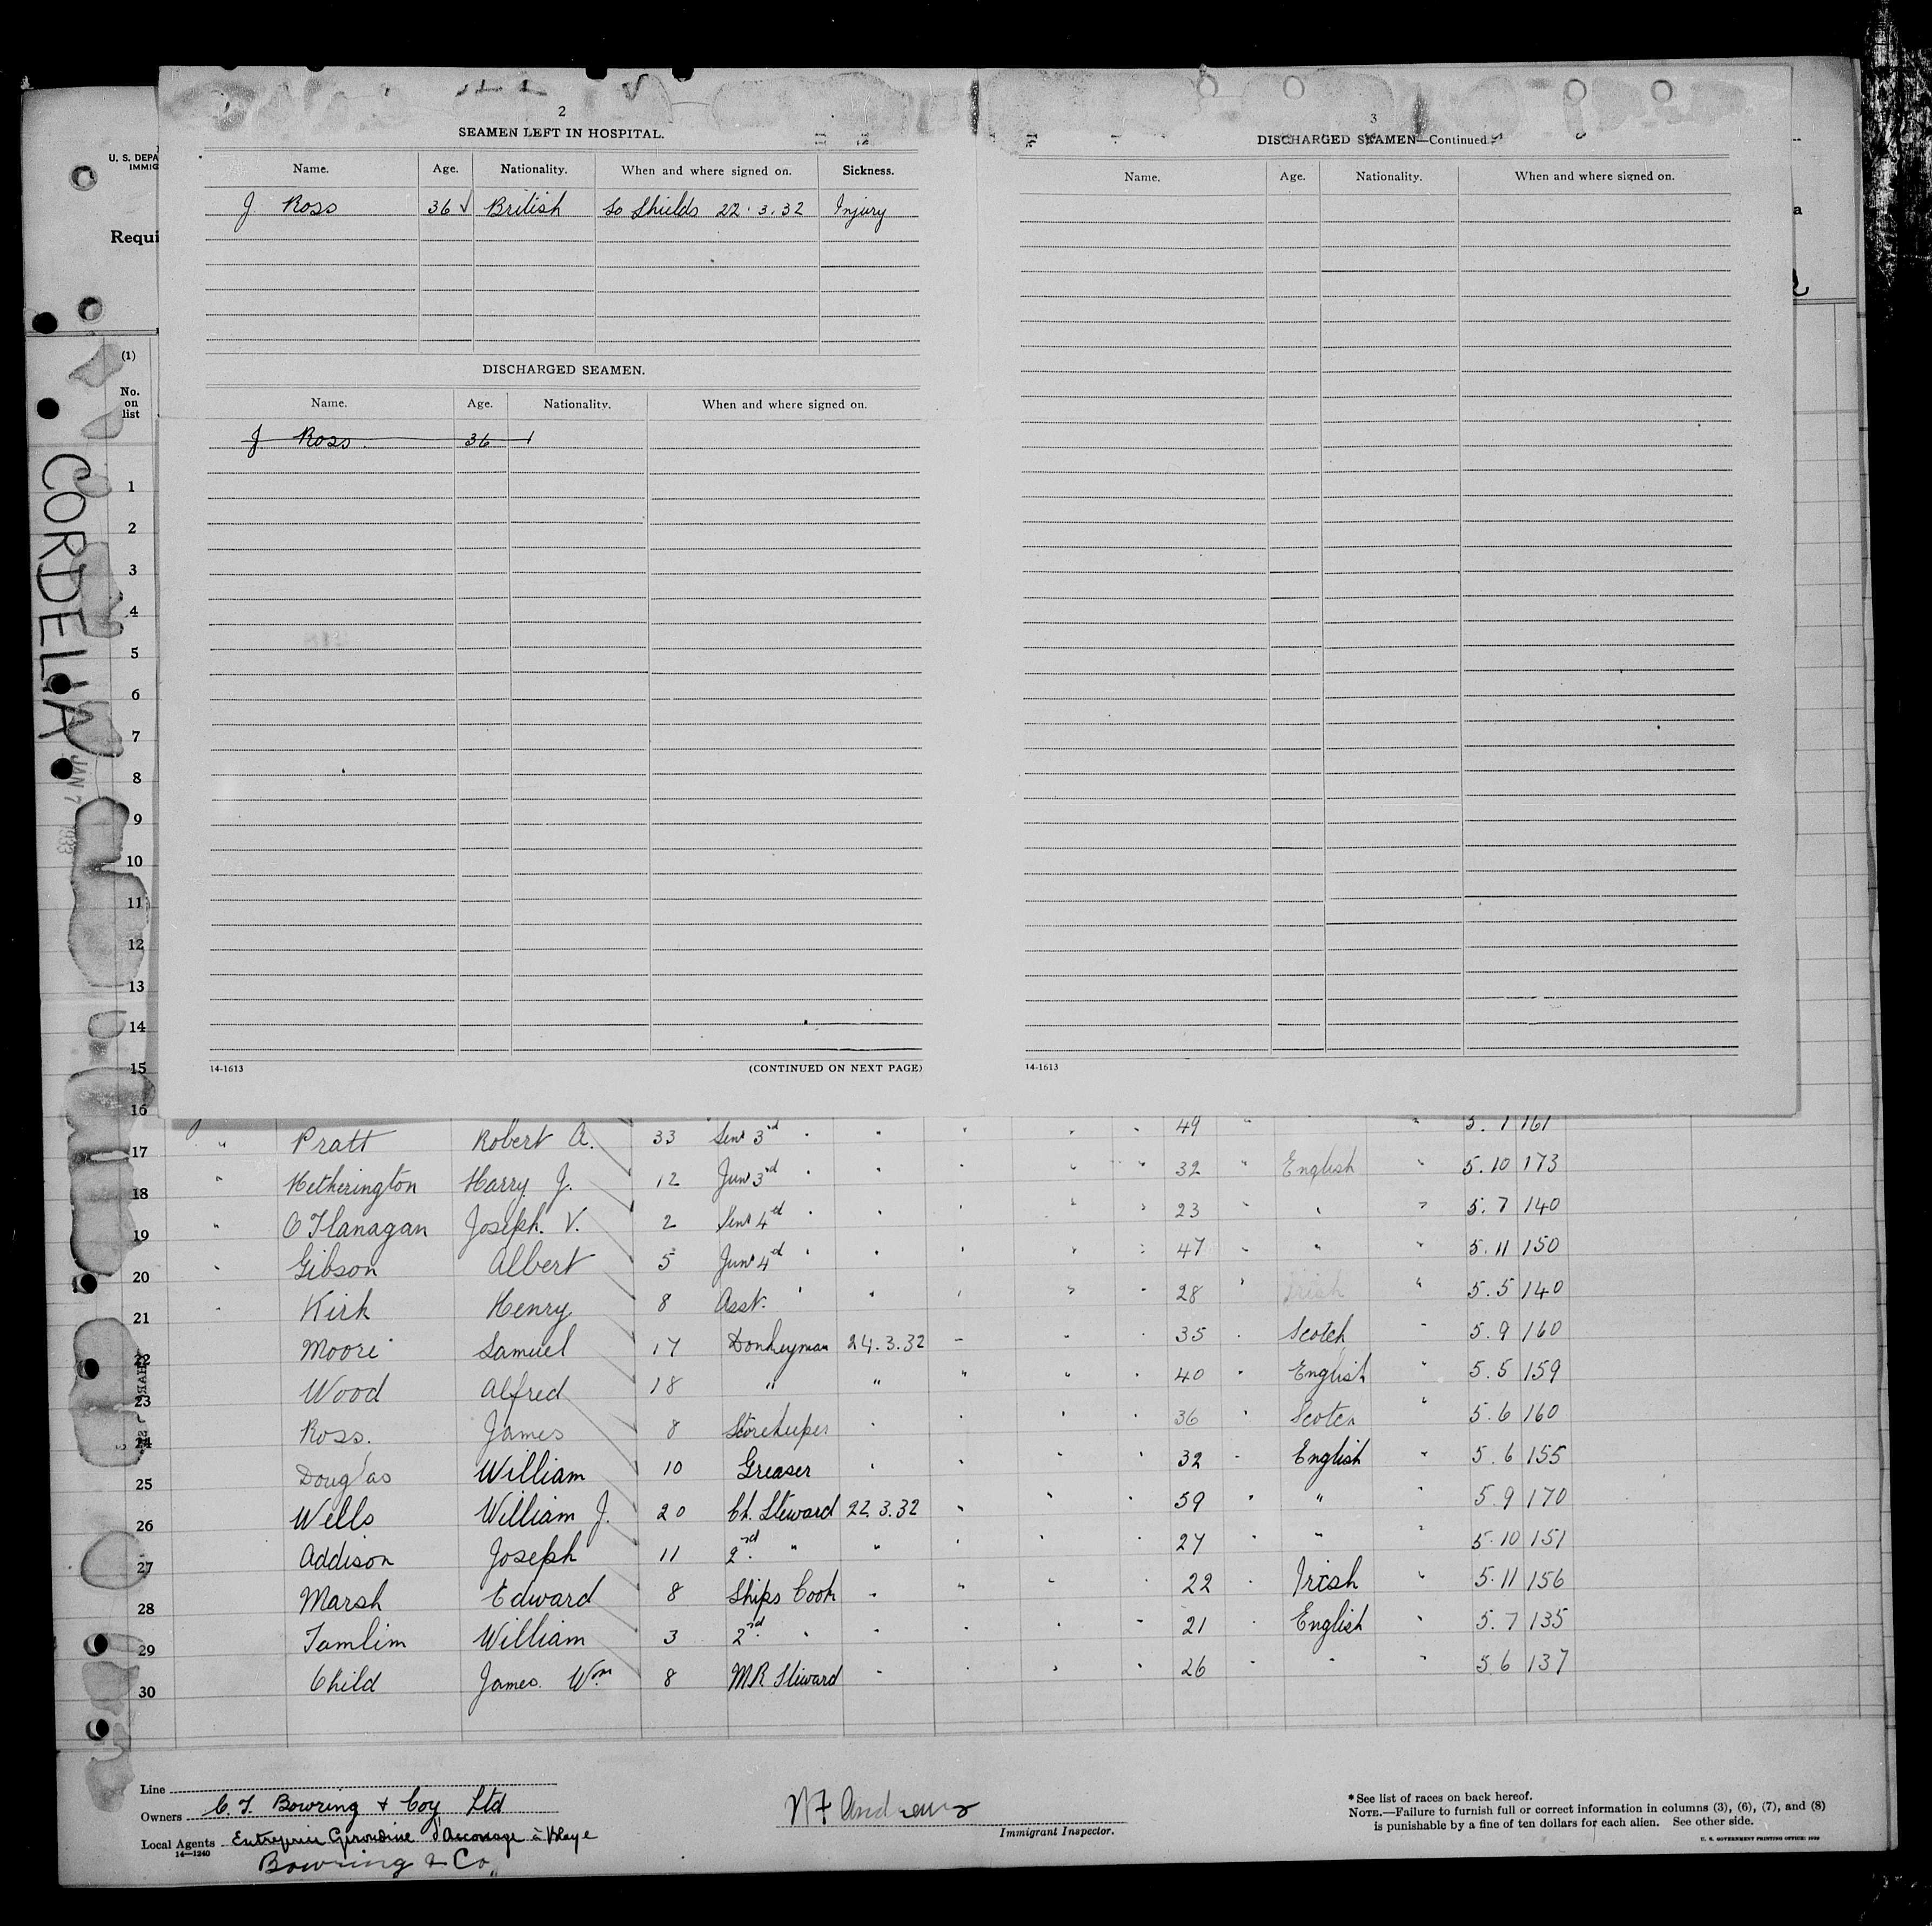 2
SEAMEN LEFT IN HOSPITAL.
Name. Age. Nationality. When and where signed on. Sickness.
J Ross 36 √ British So Shields 22.3.32 Injury
DISCHARGED SEAMEN.
Name. Age. Nationality. When and where signed on.
J Ross. 36
14-1613 (CONTINUED ON NEXT PAGE)
3
DISCHARGED SEAMEN—Continued.
Name. Age. Nationality. When and where signed on.
14-1613
U. S. DEPA
IMMIG
Requi
(1)
No.
on
list
CORDELIA
JAN 7 1933
1
2
3
4
5
6
7
8
9
10
11
12
13
14
15
16
49 161
17 " Pratt Robert A. 33 Senr 3rd " " " " " 32 " English " 5.10 173
18 " Hetherington Harry J. 12 Junr 3rd " " " " " 23 " " " 5.7 140
19 " O'Flanagan Joseph. V. 2 Senr 4ed " " " " " 47 " " " 5.11 150
20 " Gibson Albert 5 Junr 4ed " " " " " 28 " Irish " 5.5 140
21 " Kirk Henry 8 Asst. " " " " " 35 " Scotch " 5.9 160
22 Moore Samuel 17 Donkeyman 24.3.32 " " " 40 " English " 5.5 159
23 Wood Alfred 18 " " " " " 36 " Scotch " 5.6 160
24 Ross. James 8 Storekeeper " " " " 32 " English " 5.6 155
25 Douglas William 10 Greaser " " " " 59 " " " 5.9 170
26 Wells William J. 20 Ch. Steward 22.3.32 " " " 27 " " " 5.10 151
27 Addison Joseph 11 2nd " " " " " 22 " Irish " 5.11 156
28 Marsh Edward 8 Ships Cook " " " " 21 " English " 5.7 135
29 Tamlim William 3 2nd " " " " " 26 " " " 5.6 137
30 Child James. Wm 8 MR Steward " " " "
Line
Owners C. T. Bowring & Coy Ltd
Local Agents Entreprise Girondine d'Acconage à Blaye
14—1240
Bowring & Co.
N F Andrews
Immigrant Inspector.
* See list of races on back hereof.
NOTE.—Failure to furnish full or correct information in columns (3), (6), (7), and (8)
is punishable by a fine of ten dollars for each alien. See other side.
U. S. GOVERNMENT PRINTING OFFICE: 1929